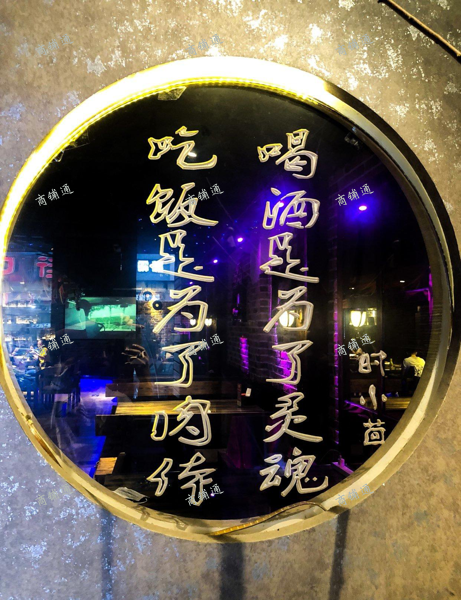 吃饭是为了肉体
喝酒是为了灵魂
时小茴
商铺通
商铺通
商铺通
商铺通
商铺通
商铺通
商铺通
商铺通
商铺通
商铺通